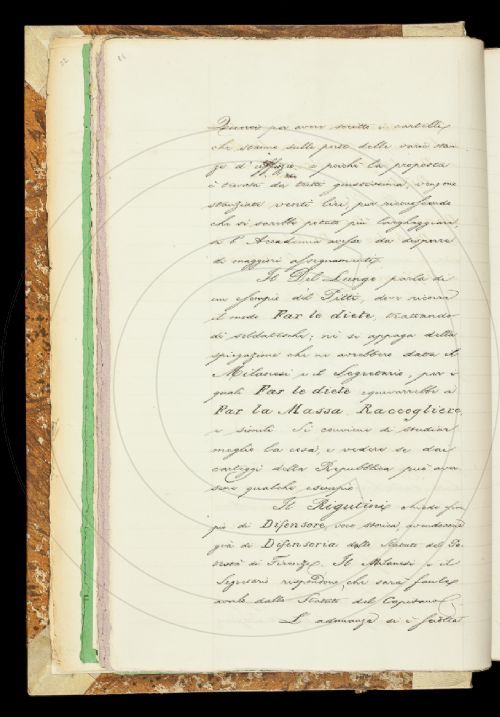 per avere scritto i cartelli
che stanno sulle porte delle varie stan
ze d'uffizio: e perchè la proposta
è trovata da tutti giustissima, vengono
stanziate venti lire, pur riconoscendo
che si sarebbe potuto più largheggiare,
se l'Accademia avesse da disporre
di maggiori assegnamenti.
Il Del Lungo parla di
un esempio del Pitti, dove ricorre
il modo Far le diete, trattando
di soldatesche; nè si appaga della
spiegazione che ne avrebbero data il
Milanesi e il Segretario, per i
quali Far le diete equivarrebbe a
Far la Massa, Raccogliere
e simili. Si conviene di studiar
meglio la cosa, e vedere se dai
carteggi della Repubblica può aver
sene qualche esempio.
Il Rigutini chiede esem
pio di Difensore, voce storica, avendocene
già di Difensoria dallo Statuto del Po
testà di Firenze. Il Milanesi e il
Segretario rispondono, che sarà facile
averlo dallo Statuto del Capitano.
L'adunanza si è sciolta